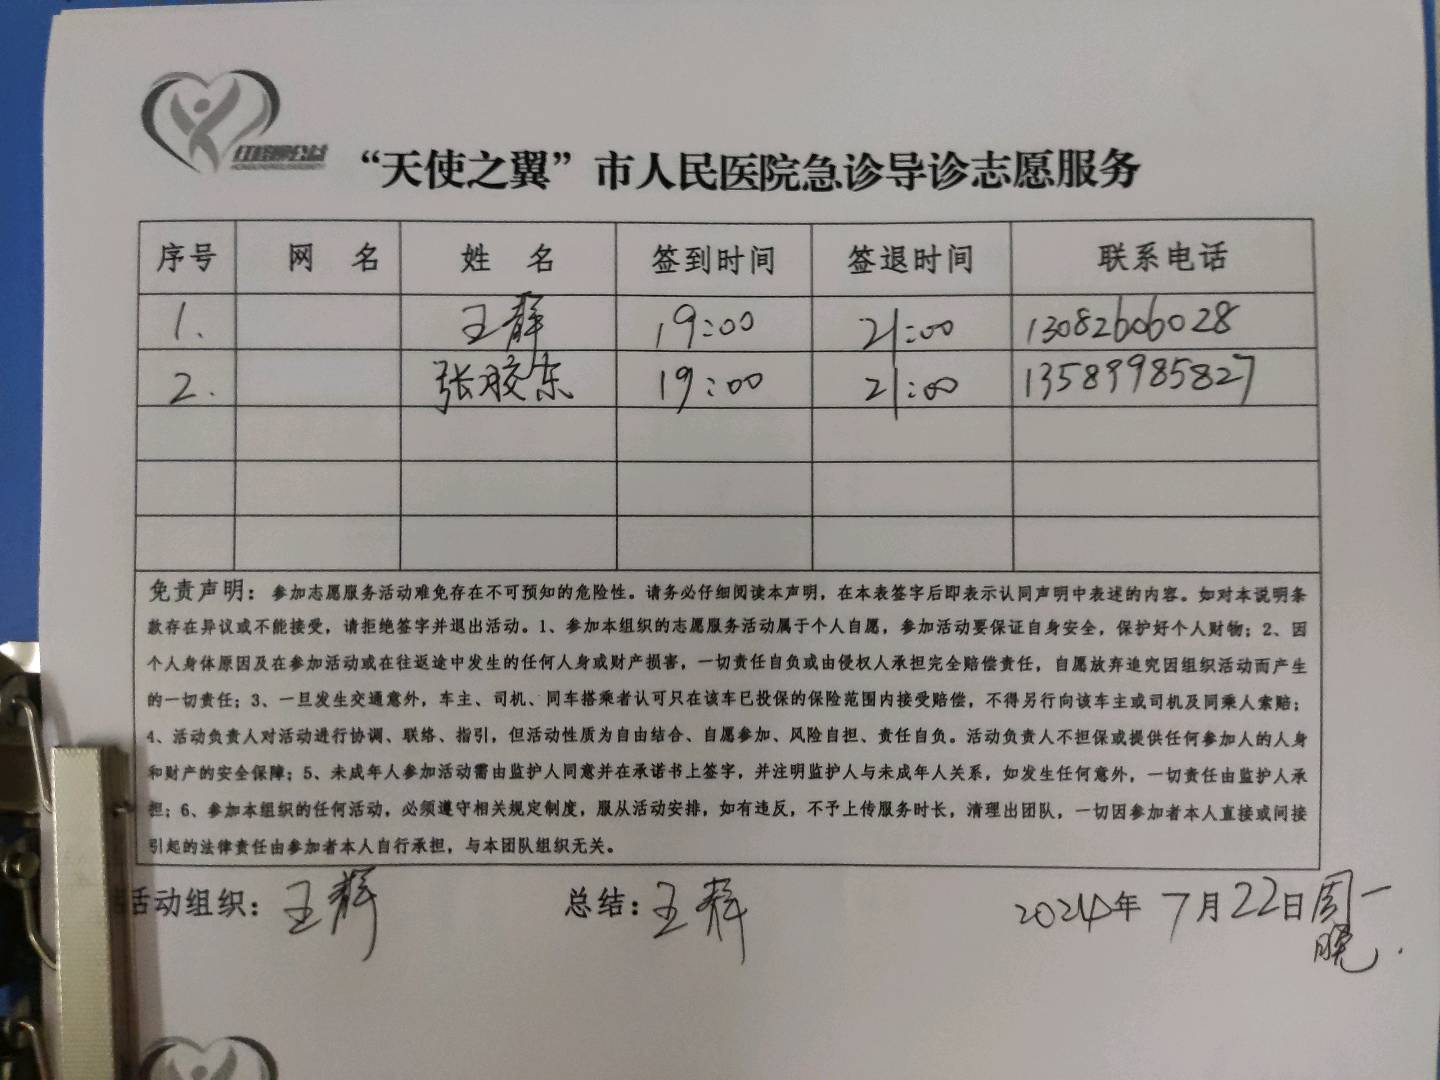 “天使之翼”市人民医院急诊导诊志愿服务
序号 网 名 姓 名 签到时间 签退时间 联系电话
1. 王静 19:00 21:00 13082606028
2. 张胶东 19:00 21:00 13589985827
免责声明：参加志愿服务活动难免存在不可预知的危险性。请务必仔细阅读本声明，在本表签字后即表示认同声明中表述的内容。如对本说明条
款存在异议或不能接受，请拒绝签字并退出活动。1、参加本组织的志愿服务活动属于个人自愿，参加活动要保证自身安全，保护好个人财物；2、因
个人身体原因及在参加活动或在往返途中发生的任何人身或财产损害，一切责任自负或由侵权人承担完全赔偿责任，自愿放弃追究因组织活动而产生
的一切责任；3、一旦发生交通意外，车主、司机、同车搭乘者认可只在该车已投保的保险范围内接受赔偿，不得另行向该车主或司机及同乘人索赔；
4、活动负责人对活动进行协调、联络、指引，但活动性质为自由结合、自愿参加、风险自担、责任自负。活动负责人不担保或提供任何参加人的人身
和财产的安全保障；5、未成年人参加活动需由监护人同意并在承诺书上签字，并注明监护人与未成年人关系，如发生任何意外，一切责任由监护人承
担；6、参加本组织的任何活动，必须遵守相关规定制度，服从活动安排，如有违反，不予上传服务时长，清理出团队，一切因参加者本人直接或间接
引起的法律责任由参加者本人自行承担，与本团队组织无关。
活动组织：王静 总结：王静 2024年 7月22日周一
晚.